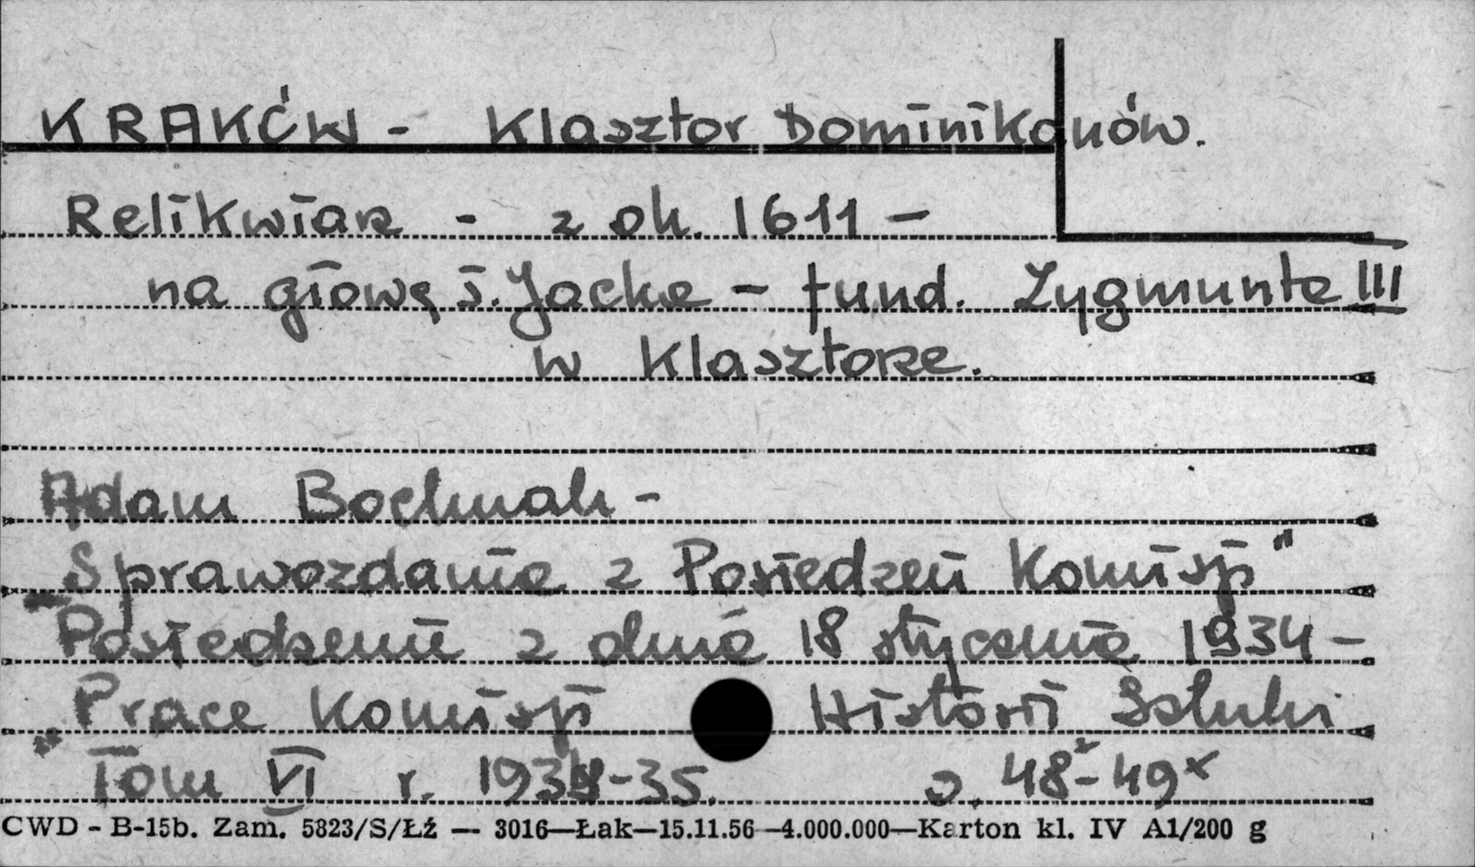 KRAKÓW - Klasztor Dominikanów.
Relikwiarz - z ok. 1611 -
na głowę ś. Jacka - fund. Zygmunta III
w Klasztorze.
Adam Bochnak -
"Sprawozdania z Posiedzeń Komisji"
Posiedzenie z dnia 18 stycznia 1934 -
"Prace Komisji Historii Sztuki
Tom VI r. 1934-35. s. 48*-49*
CWD - B-15b. Zam. 5823/S/Łź — 3016—Łak—15.11.56—4.000.000—Karton kl. IV A1/200 g